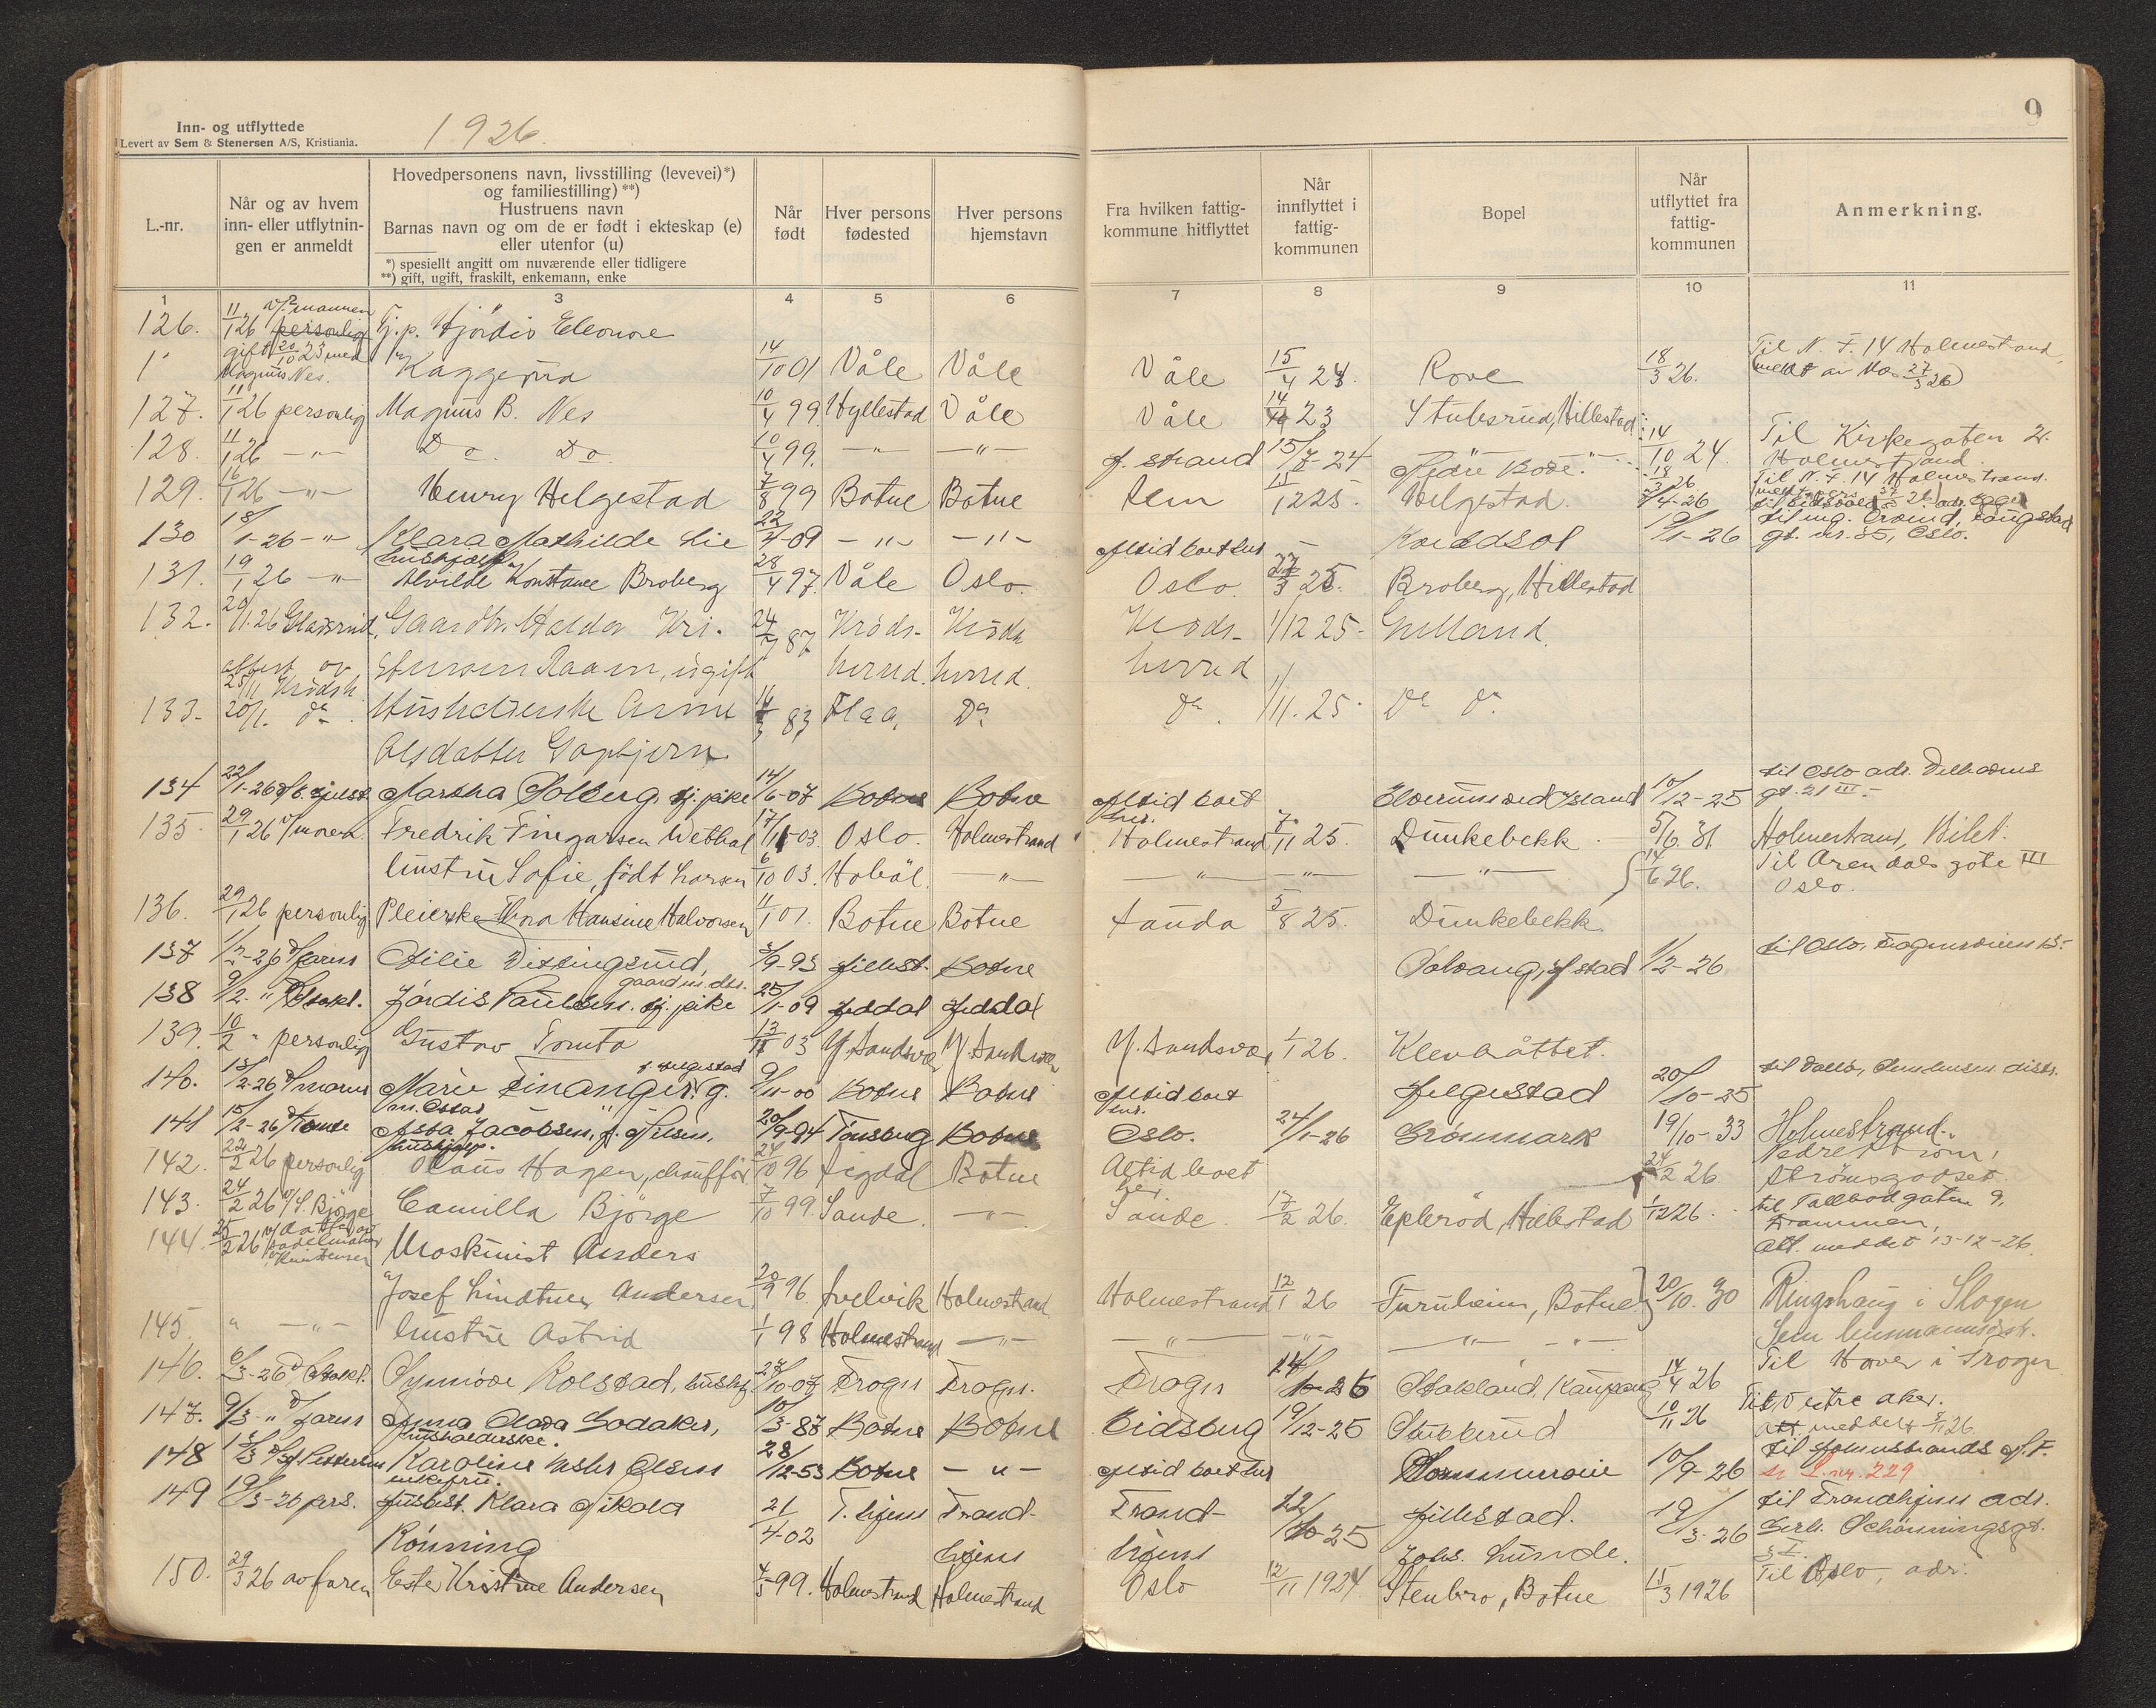 9
Inn- og utflyttede
Levert av Sem & Stenersen A/S, Kristiania.
1926.
L.-nr.
Når og av hvem inn- eller utflytningen er anmeldt
Hovedpersonens navn, livsstilling (levevei)*)
og familiestilling) **)
Hustruens navn
Barnas navn og om de er født i ekteskap (e)
eller utenfor (u)
*) spesiellt angitt om nuværende eller tidligere
**) gift, ugift, fraskilt, enkemann, enke
Når født
Hver persons fødested
Hver persons hjemstavn
Fra hvilken fattigkommune hitflyttet
Når innflyttet i fattigkommunen
Bopel
Når utflyttet fra fattigkommunen
Anmerkning.
1 3 4 5 6 7 8 9 10 11
126. 11/1 26 personlig mannen Tj.p. Hjördis Eleonore
gift 20/10 23 med Magnus Nes. Kaggerud 14/10 01 Våle Våle Våle 15/4 24. Rove 18/3 26. Til N. F. 14 Holmestrand,
127. 11/1 26 personlig Magnus B. Nes 10/4 99 Hyllestad Våle Våle 14/10 23 Stubsrud, Hillestad
128. 11/1 26 -"- Do. Do. 10/4 99. -"- -"- H. strand 15/7-24 Nedre Bode. 14/10 24 Til Kirkegaten 2. Holmestrand.
129. 16/1 26 -"- Henry Helgestad 7/8 99 Botne Botne Sem 15/12 25. Helgestad. 18/3 26 Til N. F. 14 Holmestrand.
130 18/1-26 -"- Klara Mathilde Lie 22/4-09 -"- -"- Altid boet her - Kolddsol 19/1-26 gt. nr. 35, Oslo.
hushjelp
131. 19/1 26 -"- Alvilde Konstanse Broberg 28/4 97. Våle Oslo. Oslo. 27/3 25. Broberg, Hillestad
132. 20/1.26 Gladsrud, Gaardbr. Halvdan Kri- 24/7 87 Kröds- Kröds- Kröds- 1/12 25- Gulland
attest av Stensen Raaen, ugift herred. herred. herred
25/11 Krödsh.
133- 20/1. do. Husholderske Anne 14/3 83 Flaa, Do Do. 1/11. 25- Do Do
Olsdatter Gopbjörn
134 22/1-26 Martha Solberg. tj. pike 14/6-07 Botne Botne Altid boet her. 10/12-25 til Oslo adr. Vilhelms gt. 21 III.-
135. 29/1 26 Fredrik Fingarsen Wethal 17/11 03. Oslo. Holmestrand Holmestrand 7/11 25. Dunkebekk 5/6. 31 Holmestrand, Bilet.
hustru Sofie, född Larsen 6/10 03. Hobøl. -"- -"- -"- -"- 14/6 26. Til Arendals gate III Oslo.
136. 29/1 26 personlig Pleierske Thora Hansine Halvorsen 11/1 01. Botne Botne Sande 5/8 25. Dunkebekk.
137 1/2-26 Otilie Dittingsrud, 3/9-93 Hillest. Botne Solvang, H stad 1/2-26 til Oslo,
138 9/2 -"- Hjördis Paulsen. tj. pike gaardm. dtr. 25/1-09 Heddal Heddal
139. 10/2 " personlig Gustav Tomta 13/11 03 Y. Sandsvær Y. Sandsvær Y. Sandsvær 1/1 26. Klevbråttet.
140. 13/2-26 Marie Finanger. g. f. Helgestad 9/11-00 Botne Botne Altid boet her. Helgestad 20/10-25
141 15/2-26 Asta Jacobsen, f. Nilsen, 20/9-94 Tönsberg Botne Oslo. 24/1-26 Grönmark 19/10-33 Holmestrand.
hushjelp.
142. 22/2 26 personlig Olaus Hagen, chaufför 24/10 96 Sigdal Botne Altid boet her. 24/2 26. Nedre Ström, Strömsgodset.
143. 24/2 26 v/S. Bjørge Camilla Bjørge 7/10 99 Sande. -"- Sande. 17/2 26. Eplerød, Hillestad 1/12 26. til Tollbodgaten 9, Drammen, att. meddet 13-12-26.
144. 25/2 26 Maskinist Anders
Josef Lindtner Andersen 20/9 96. Svelvik Holmestrand Holmestrand 12/1 26 Furuheim, Botne. 20/10. 30 Ringshaug i Slagen
145. " -"- hustru Astrid 1/1 98 Holmestrand -"- -"- -"- -"- Sem
146. 6/3-26 Synnöve Kolstad, hushj. 27/10-07 Frogn Frogn. Frogn 14/10-25 Stokland, Kaupang 14/4 26 Til Haver i Frogn
147. 9/3-" Anna Olava Godaker, 10/3-87 Botne Botne Eidsberg 19/12-25 Stubberud 10/11 26 Til Vestre Aker. att. meddelt 5/11 26.
husholderske.
148 13/3 Karoline Olsen 28/12-53 Botne -"- Altid boet her 10/9-26 til Holmestrands g.F.
enkefru. se L.nr. 229
149 19/3-26 pers. Husbest. Klara Nikola 21/4-02 T. hjem Trond- Trond- 12/10-25 Hillestad. 19/3-26 til Trondhjem adr.
Rönning hjem hjem Johs. Lunde. Schönningsgt. 3 I.
150. 29/3 26 av faren Ester Kristine Andersen 4/5 99. Holmestrand Holmestrand Oslo 12/11 1924 Stenbro, Botne 15/3 1926 Til Oslo, adr.